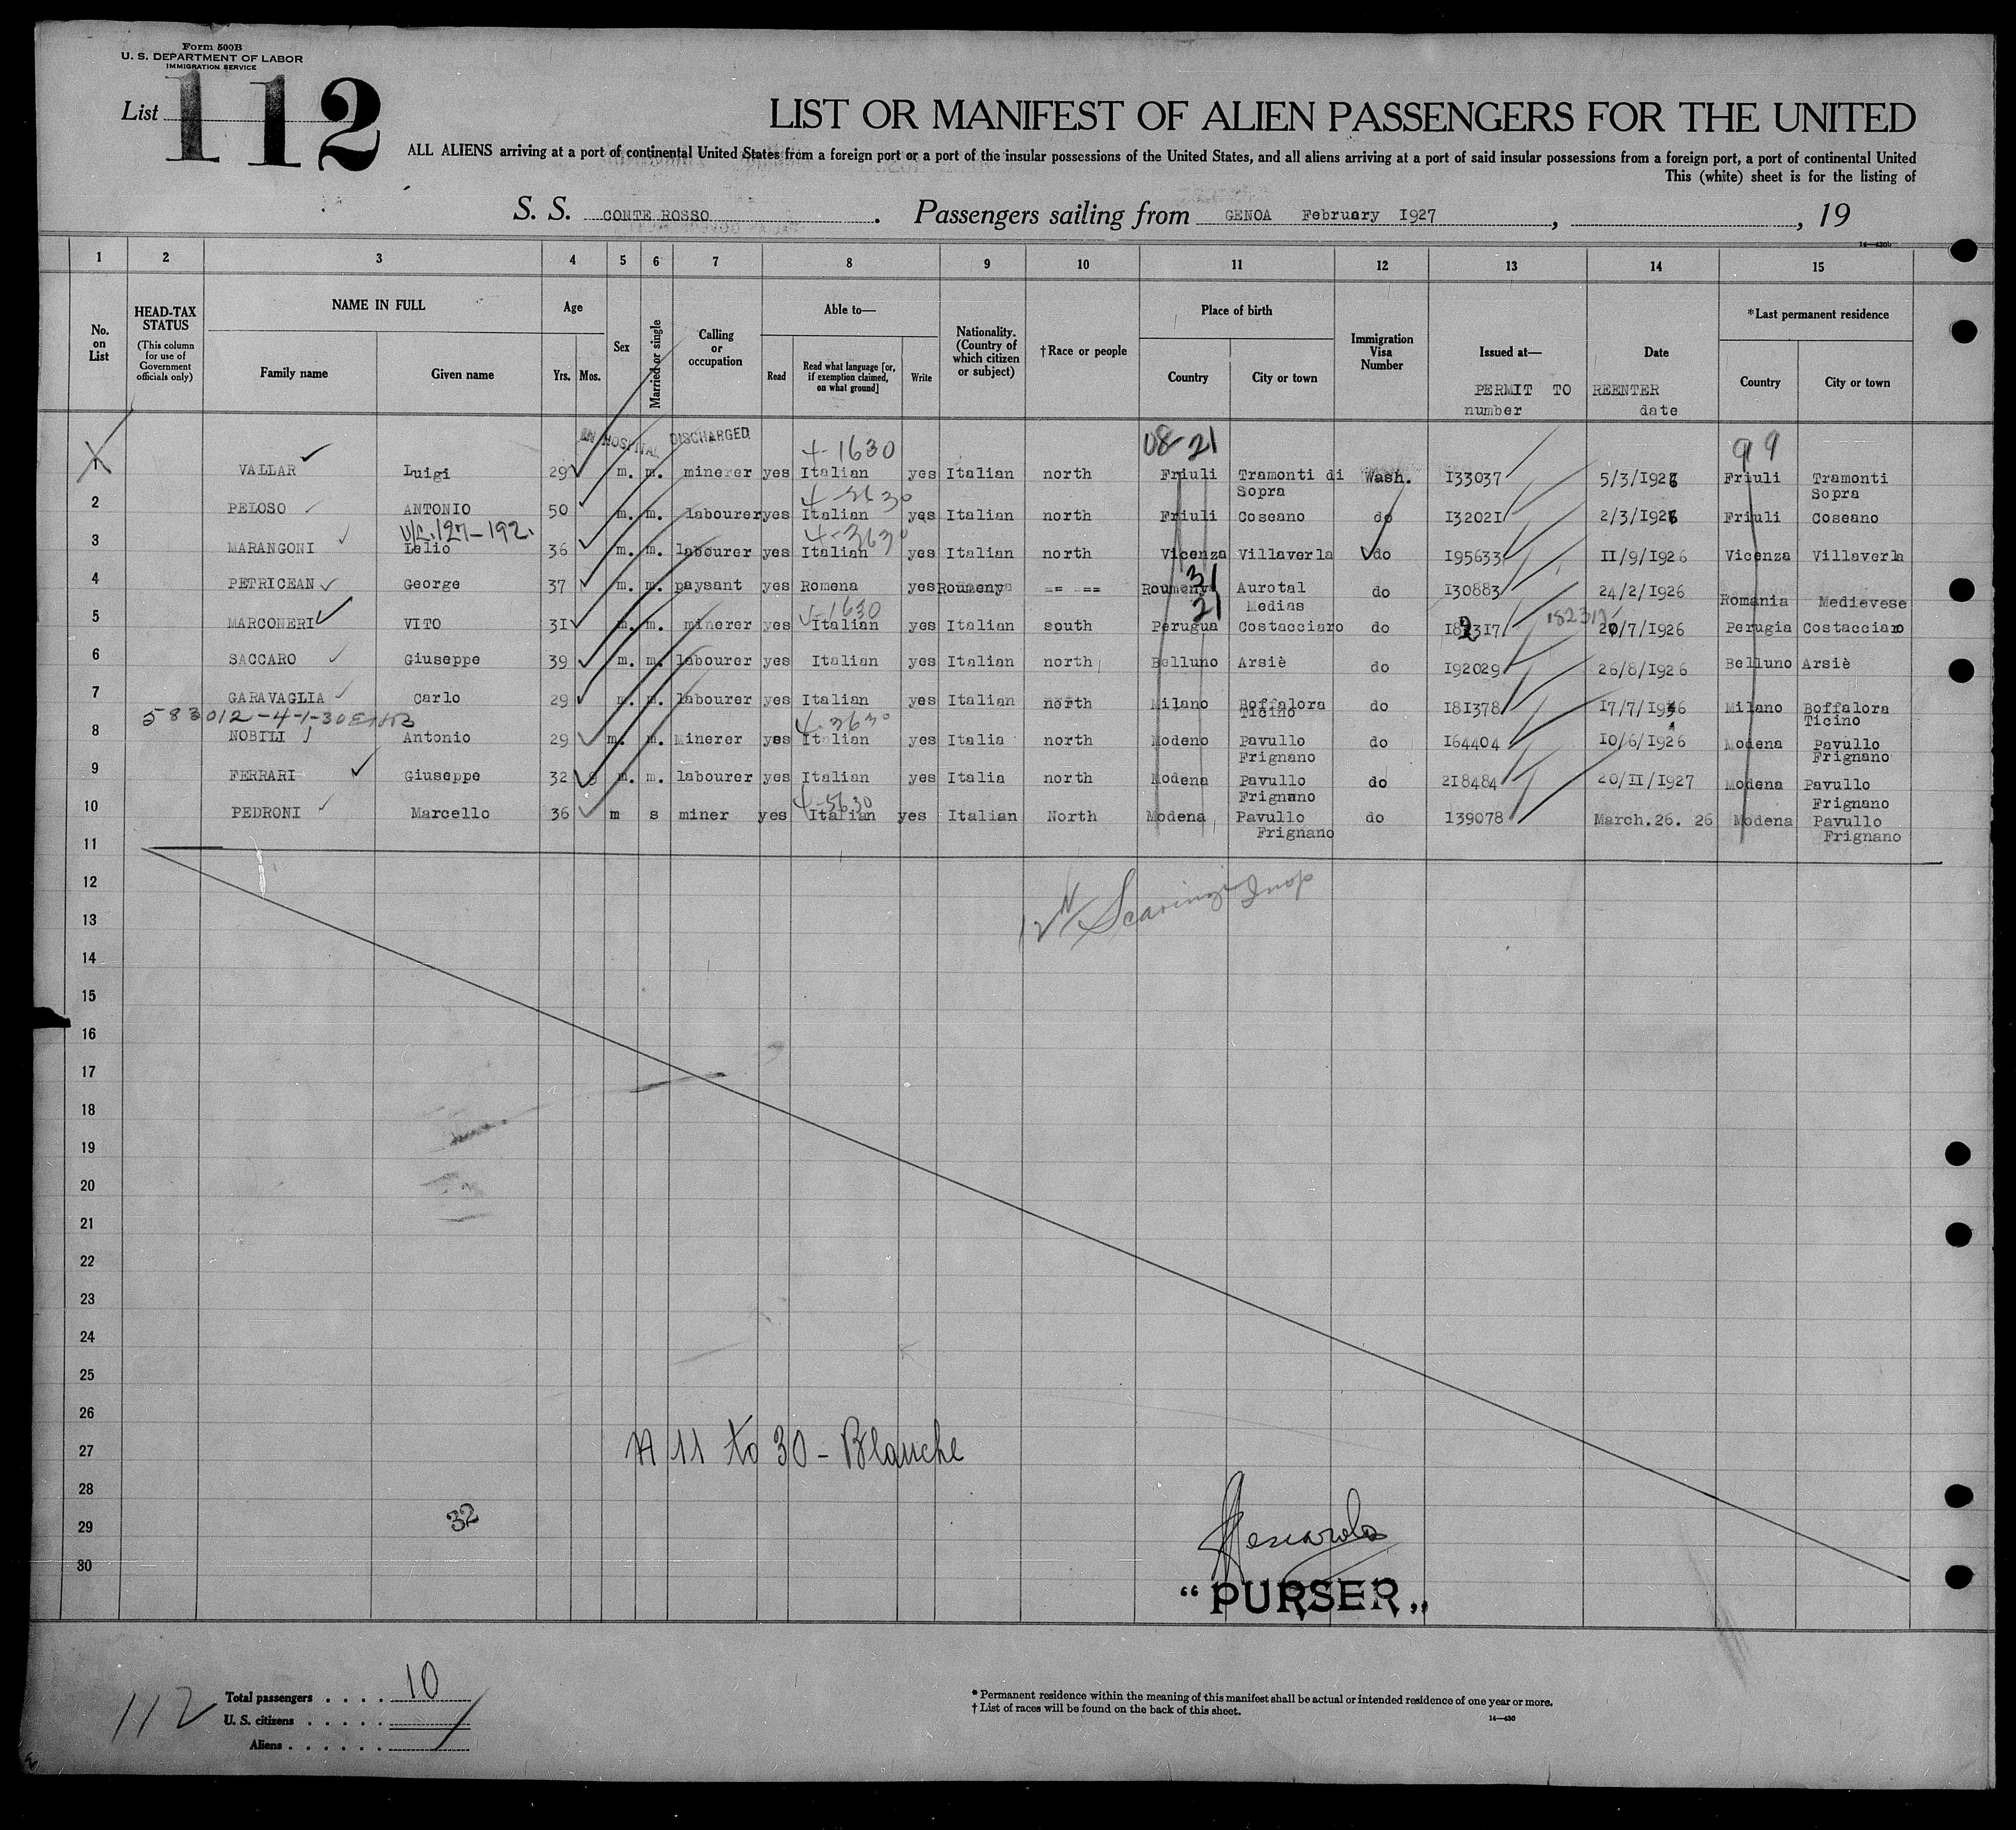 Form 500B
U. S. DEPARTMENT OF LABOR
IMMIGRATION SERVICE
List 112
LIST OR MANIFEST OF ALIEN PASSENGERS FOR THE UNITED
ALL ALIENS arriving at a port of continental United States from a foreign port or a port of the insular possessions of the United States, and all aliens arriving at a port of said insular possessions from a foreign port, a port of continental United
This (white) sheet is for the listing of
S. S. CONTE ROSSO. Passengers sailing from GENOA February 1927, , 19
14—430b
1 2 3 4 5 6 7 8 9 10 11 12 13 14 15
No. on List
HEAD-TAX STATUS
(This column for use of Government officials only)
NAME IN FULL
Family name
Given name
Age
Yrs. Mos.
Sex
Married or single
Calling or occupation
Able to—
Read
Read what language [or, if exemption claimed, on what ground]
Write
Nationality. (Country of which citizen or subject)
†Race or people
Place of birth
Country
City or town
Immigration Visa Number
Issued at—
Date
PERMIT TO REENTER
number date
*Last permanent residence
Country
City or town
IN HOSPITAL DISCHARGED
4-1630 08-21 99
1 VALLAR Luigi 29 m. m. minerer yes Italian yes Italian north Friuli Tramonti di Sopra Wash. 133037 5/3/1926 Friuli Tramonti Sopra
4-3630
2 PELOSO ANTONIO 50 m. m. labourer yes Italian yes Italian north Friuli Coseano do 132021 2/3/1926 Friuli Coseano
V/L.127-192. 4-3630
3 MARANGONI Lelio 36 m. m. labourer yes Italian yes Italian north Vicenza Villaverla do 195633 11/9/1926 Vicenza Villaverla
4 PETRICEAN George 37 m. m. paysant yes Romena yes Roumeny == == Roumeny 31 Aurotal Medias do 130883 24/2/1926 Romania Medievese
4-1630 21 182317
5 MARCONERI VITO 31 m. m. minerer yes Italian yes Italian south Perugua Costacciaro do 182317 20/7/1926 Perugia Costacciaro
6 SACCARO Giuseppe 39 m. m. labourer yes Italian yes Italian north Belluno Arsiè do 192029 26/8/1926 Belluno Arsiè
7 GARAVAGLIA Carlo 29 m. m. labourer yes Italian yes Italian north Milano Boffalora Ticino do 181378 17/7/1926 Milano Boffalora Ticino
583012-4-1-30 4-3630
8 NOBILI Antonio 29 m. m. Minerer yes Italian yes Italia north Modeno Pavullo Frignano do 164404 10/6/1926 Modena Pavullo Frignano
9 FERRARI Giuseppe 32 m. m. labourer yes Italian yes Italia north Modena Pavullo Frignano do 218484 20/11/1927 Modena Pavullo Frignano
4-3630
10 PEDRONI Marcello 36 m s miner yes Italian yes Italian North Modena Pavullo Frignano do 139078 March.26. 26 Modena Pavullo Frignano
11
12
13
14
15
16
17
18
19
20
21
22
23
24
25
26
27
28
29
30
N 11 to 30 - Blanche
32
"PURSER"
112
Total passengers . . . . 10
U. S. citizens . . . . .
Aliens . . . . . .
* Permanent residence within the meaning of this manifest shall be actual or intended residence of one year or more.
† List of races will be found on the back of this sheet.
14—430